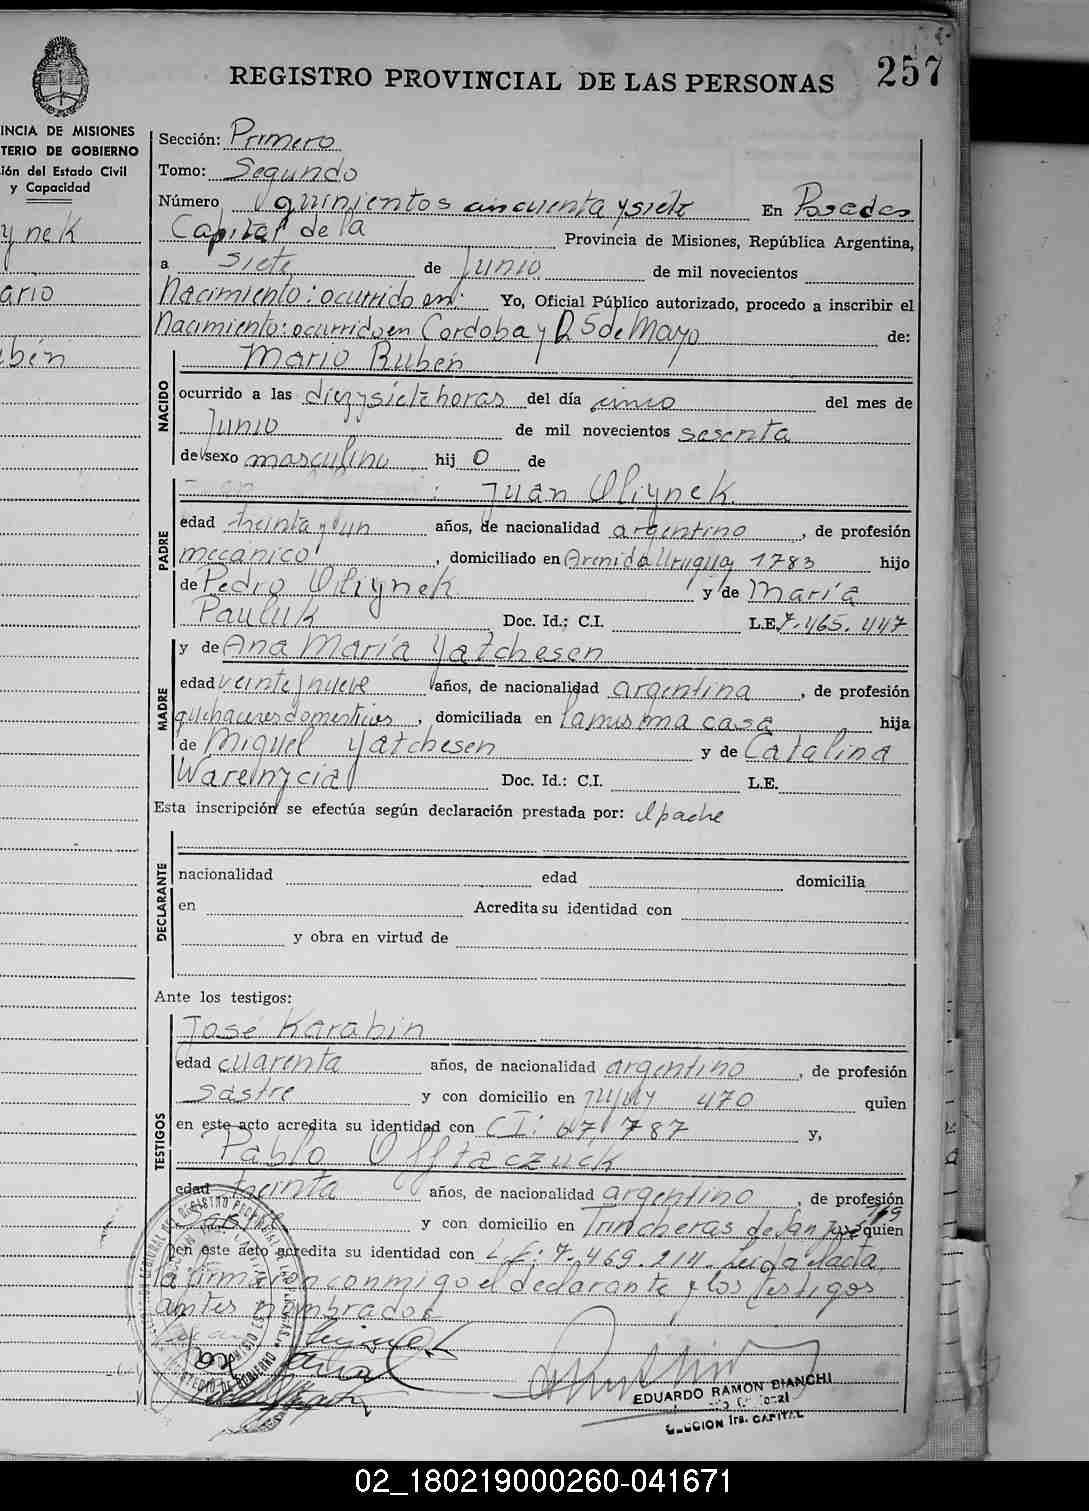 REGISTRO PROVINCIAL DE LAS PERSONAS
257
INCIA DE MISIONES
TERIO DE GOBIERNO
ión del Estado Civil
y Capacidad
ynek
ario
bén
Sección: Primero
Tomo: Segundo
Número quinientos cincuenta y siete En Posadas
Capital de la Provincia de Misiones, República Argentina,
a siete de Junio de mil novecientos
Nacimiento: ocurrido en: Yo, Oficial Público autorizado, procedo a inscribir el
Nacimiento: ocurrido en Cordoba y 25 de Mayo de:
NACIDO
Mario Rubén
ocurrido a las diez y siete horas del día cinco del mes de
Junio de mil novecientos sesenta
de sexo masculino hij o de
PADRE
Juan Oliynek
edad treinta y un años, de nacionalidad argentino, de profesión
mecánico, domiciliado en Avenida Uruguay 1783 hijo
de Pedro Oliynek y de María
Pauluk Doc. Id.; C.I. L.E. 7.465.447
MADRE
y de Ana María Yatchesen
edad veinte y nueve años, de nacionalidad argentina, de profesión
quehaceres domesticos, domiciliada en la misma casa hija
de Miguel Yatchesen y de Catalina
Warenycia Doc. Id.: C.I. L.E.
Esta inscripción se efectúa según declaración prestada por: el padre
DECLARANTE
nacionalidad edad domicilia
en Acredita su identidad con
y obra en virtud de
Ante los testigos:
TESTIGOS
José Karabin
edad cuarenta años, de nacionalidad argentino, de profesión
sastre y con domicilio en Jujuy 470 quien
en este acto acredita su identidad con C I: 67,787 y,
Pablo
edad treinta años, de nacionalidad argentino, de profesión
y con domicilio en Trincheras de San José quien
en este acto acredita su identidad con L.E: 7.469.214. Leida el acta
la firmaron conmigo el declarante y los testigos
antes nombrados.
EDUARDO RAMON BIANCHI
SECCION 1ra. CAPITAL
02_180219000260-041671